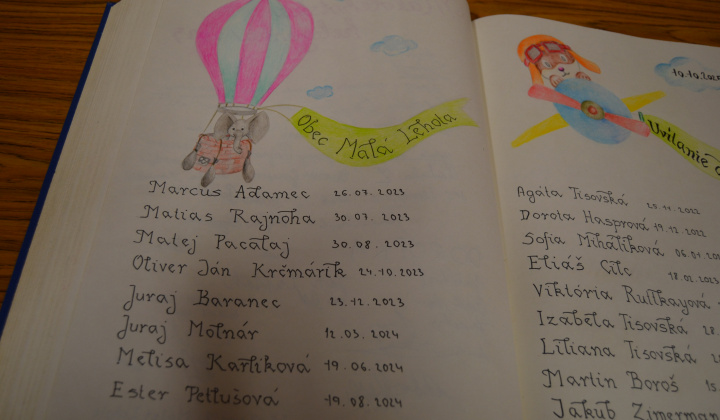 Obec Malá Lehota
Marcus Adamec 26.07.2023
Matias Rajnoha 30.07.2023
Matej Pacalaj 30.08.2023
Oliver Ján Krčmárik 24.10.2023
Juraj Baranec 23.12.2023
Juraj Molnár 12.03.2024
Melisa Karlíková 19.06.2024
Ester Petlušová 19.08.2024
Uvítanie
Agáta Tisovská
Dorota Hasprová 19.12.2022
Sofia Mihálíková
Eliáš Cílc 18.02.2023
Viktória
Izabela Tisovská
Liliana Tisovská
Martin Boroš
Jakub